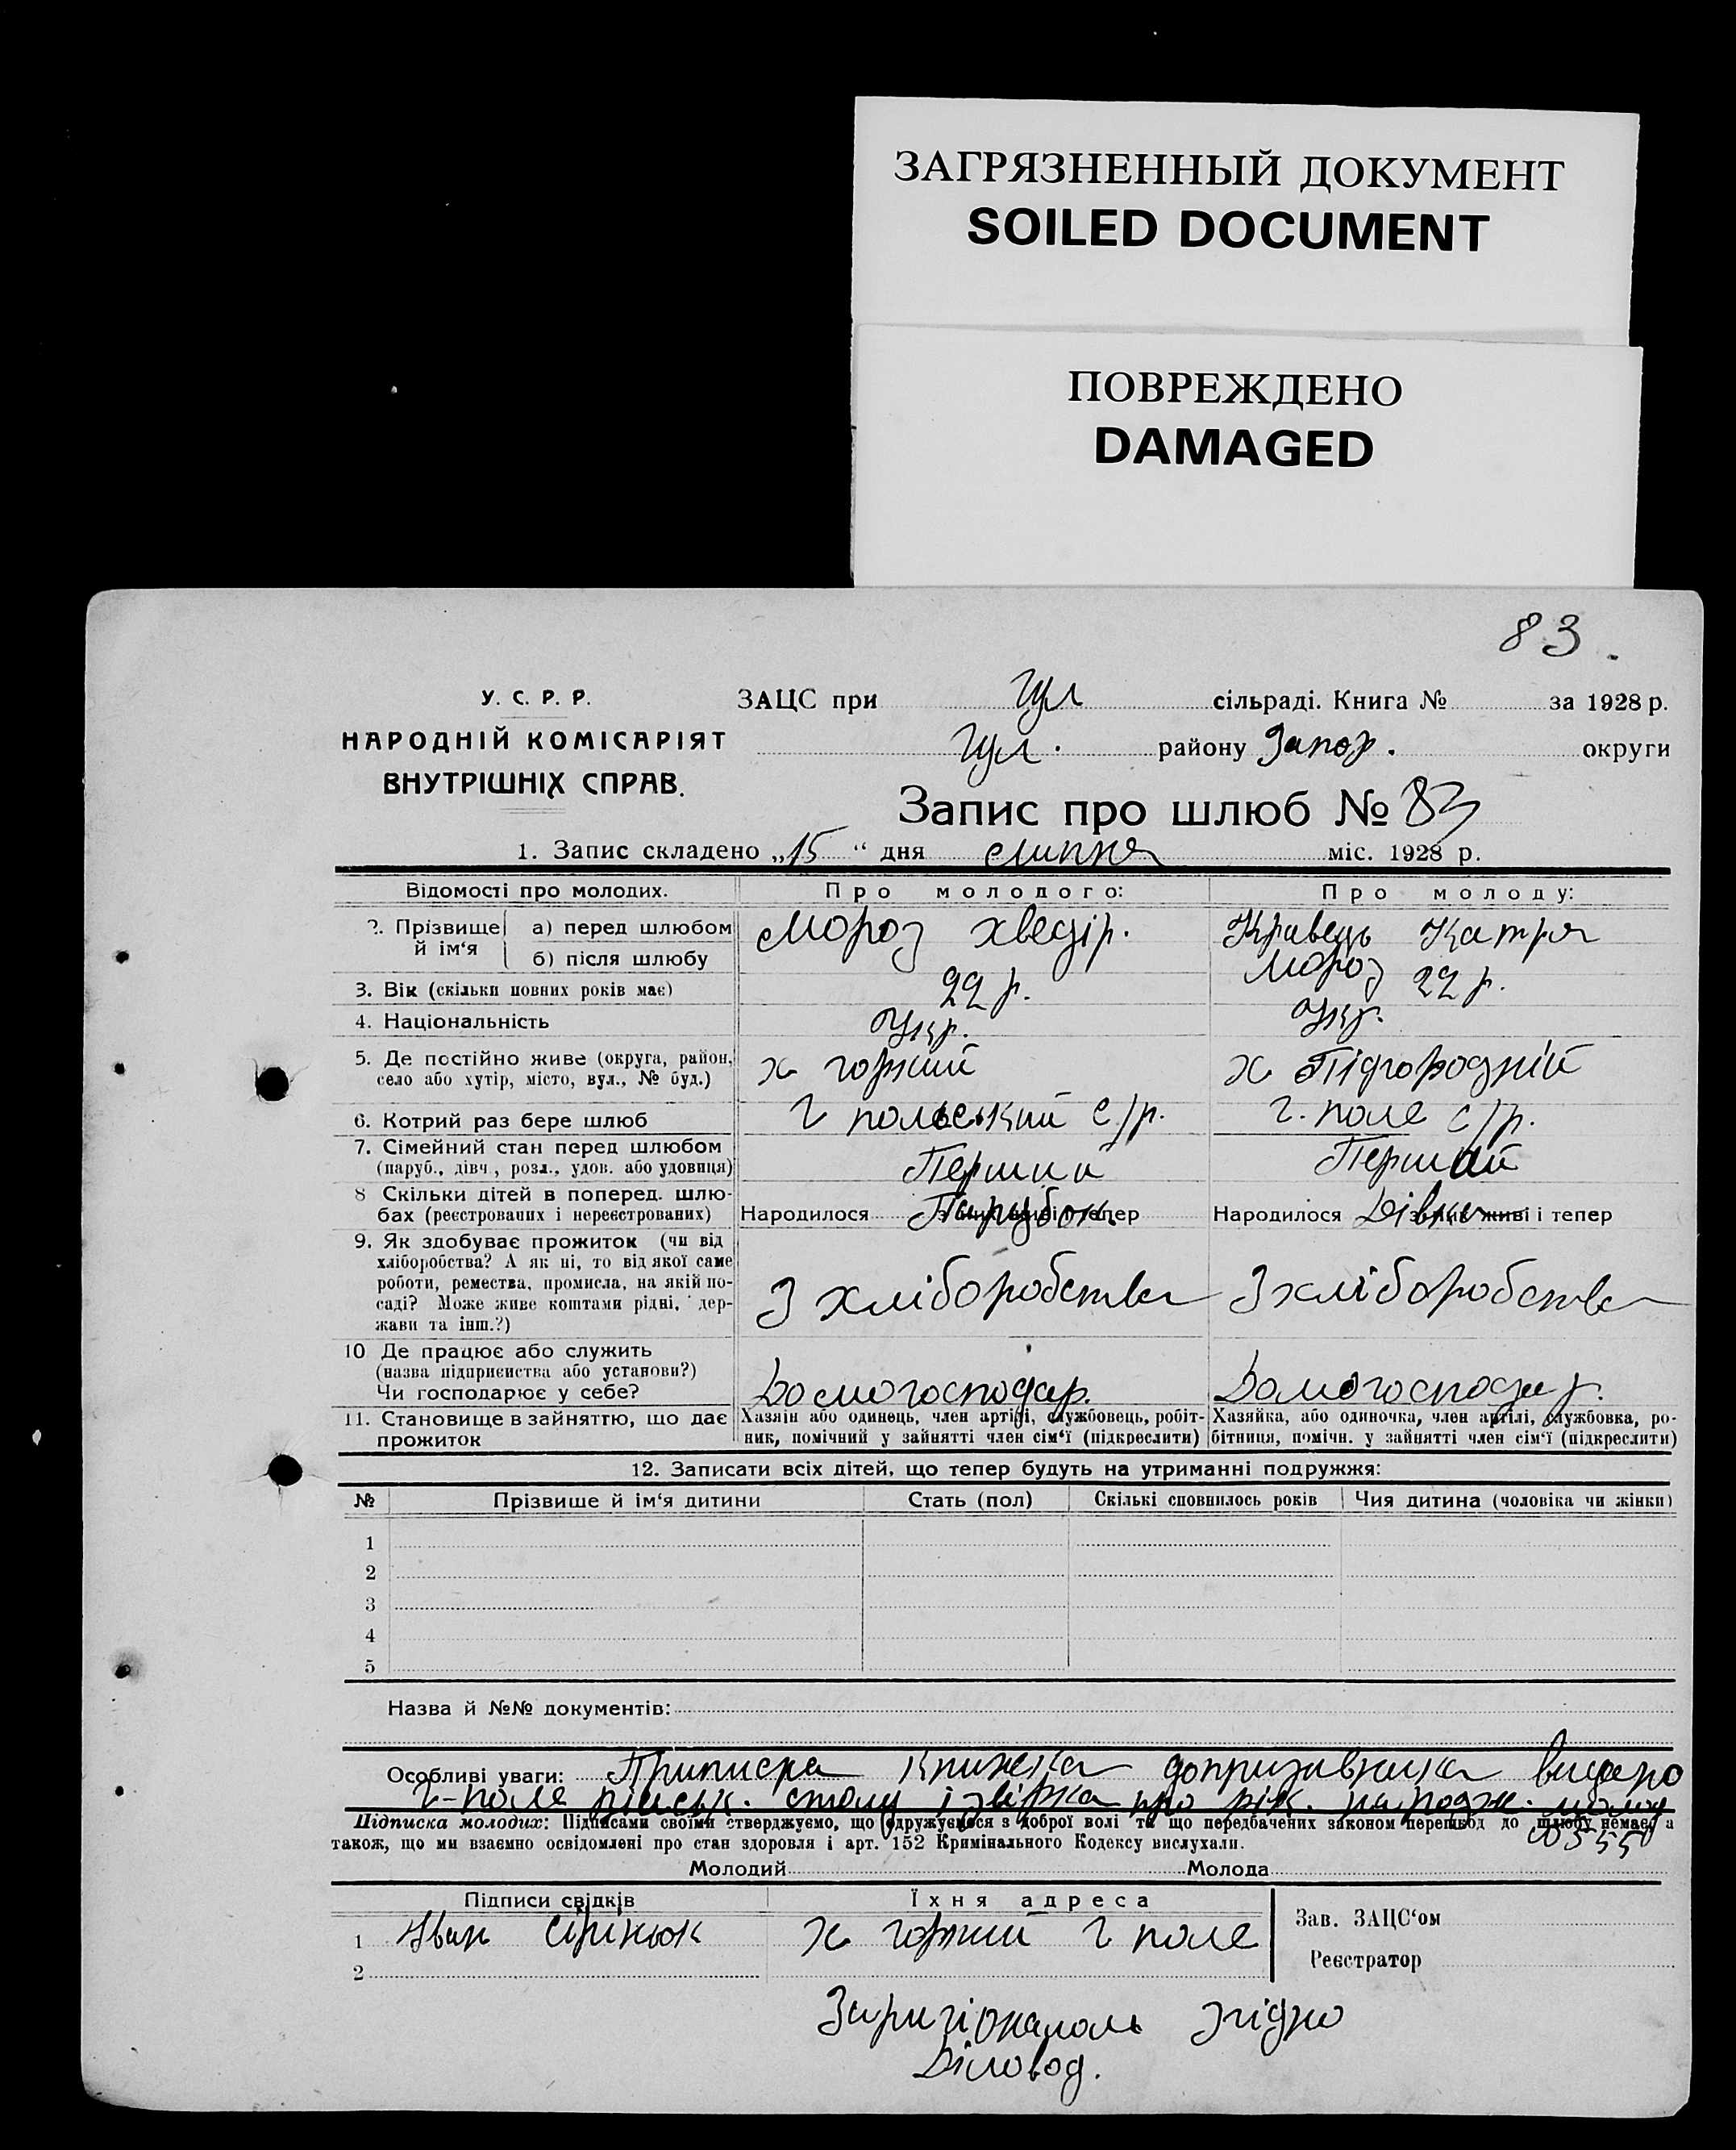 ЗАГРЯЗНЕННЫЙ ДОКУМЕНТ
SOILED DOCUMENT
ПОВРЕЖДЕНО
DAMAGED
83.
У. С. Р. Р.
НАРОДНІЙ КОМІСАРІЯТ
ВНУТРІШНІХ СПРАВ.
ЗАЦС при Гул сільраді. Книга № за 1928 р.
Гул. району Запор. округи
Запис про шлюб № 83
1. Запис складено „15“ дня липня міс. 1928 р.
Відомості про молодих. Про молодого: Про молоду:
2. Прізвище й ім‘я а) перед шлюбом Мороз Хведір. Кравець Катря
б) після шлюбу Мороз
3. Вік (скільки повних років має) 22 р. 22 р.
4. Національність Укр. Укр.
5. Де постійно живе (округа, район, село або хутір, місто, вул., № буд.) х горький х Підгородній
6. Котрий раз бере шлюб Г польський с/р. Г. поле с/р.
7. Сімейний стан перед шлюбом (паруб., дівч., розл., удов. або удовиця) Перший Перший
8 Скільки дітей в поперед. шлюбах (реєстрованих і нереєстрованих) Народилося Парубок з них живі і тепер Народилося Дівка з них живі і тепер
9. Як здобуває прожиток (чи від хліборобства? А як ні, то від якої саме роботи, ремества, промисла, на якій посаді? Може живе коштами рідні, держави та інш.?) З хліборобства З хліборобства
10 Де працює або служить (назва підприємства або установи?) Чи господарює у себе? Домогосподар. Домогосподар.
11. Становище в зайняттю, що дає прожиток
Хазяїн або одинець, член артілі, службовець, робітник, помічний у зайнятті член сім‘ї (підкреслити)
Хазяйка, або одиночка, член артілі, службовка, робітниця, помічн. у зайнятті член сім‘ї (підкреслити)
12. Записати всіх дітей, що тепер будуть на утриманні подружжя:
№ Прізвише й ім‘я дитини Стать (пол) Скількі сповнилось років Чия дитина (чоловіка чи жінки)
1
2
3
4
5
Назва й №№ документів:
Особливі уваги: Приписна книжка допризавника видано
Г-поле військ. столу і звірка про рік. народж. молод
Підписка молодих: Підписами своїми стверджуємо, що одружуємося з доброї волі та що передбачених законом перешкод до шлюбу немає, а
також, що ми взаємно освідомлені про стан здоровля і арт. 152 Кримінального Кодексу вислухали.
Молодий Молода
Підписи свідків Їхня адреса Зав. ЗАЦС‘ом
1 Іван х Г поле
2 Реєстратор
згідно
Діловод.